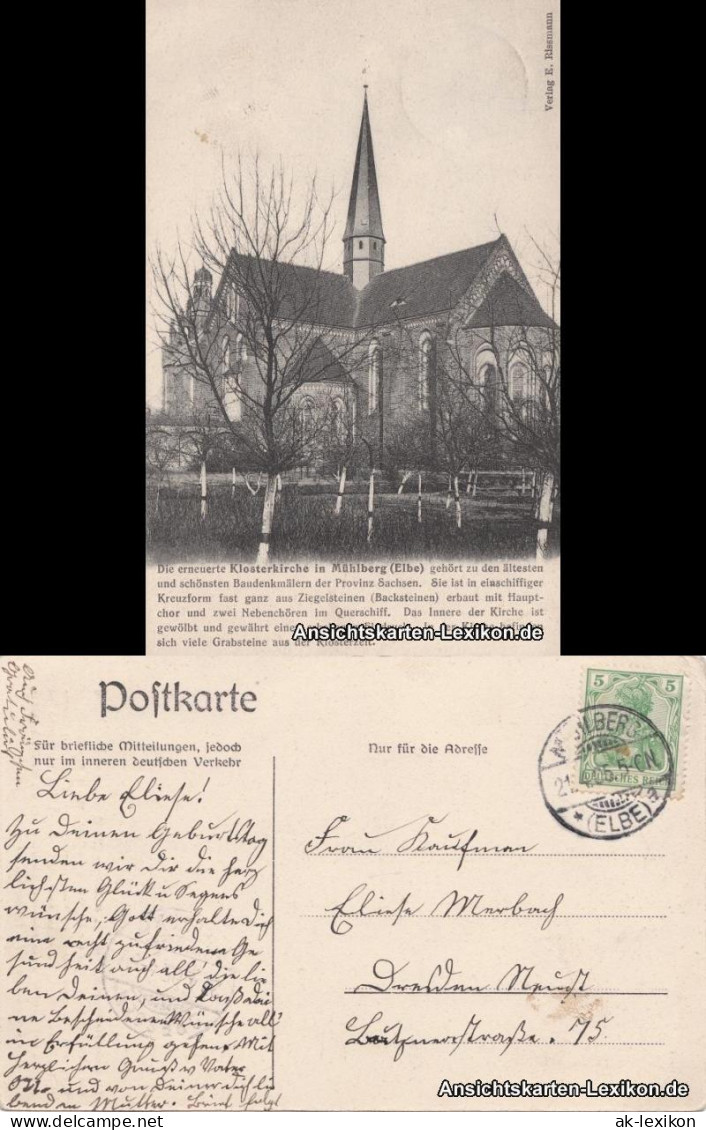 Verlag E. Rissmann
Die erneuerte Klosterkirche in Mühlberg (Elbe) gehört zu den ältesten
und schönsten Baudenkmälern der Provinz Sachsen. Sie ist in einschiffiger
Kreuzform fast ganz aus Ziegelsteinen (Backsteinen) erbaut mit Haupt-
chor und zwei Nebenchören im Querschiff. Das Innere der Kirche ist
gewölbt und gewährt einen
Ansichtskarten-Lexikon.de
sich viele Grabsteine aus der Klosterzeit.
Postkarte
Für briefliche Mitteilungen, jedoch
nur im inneren deutschen Verkehr
Nur für die Adresse
5 5
DEUTSCHES REICH
MÜHLBERG
(ELBE)
Liebe Eliese!
Zu Deinen Geburtstag
senden wir Dir die herz
lichsten Glück u Segens
wünsche, Gott erhalte Dich
eine recht zufriedene Ge
sundheit auch all' die lie
ben Deinen, und daß dei
ne bescheidenen Wünsche all'
in Erfüllung gehen. Mit
herzlichen Gruß v Vater
und von Deiner dich lie
benden Mutter. Brief folgt
Frau Kaufman
Eliese Merbach
Dresden Neust
Bautznerstraße. 75.
Ansichtskarten-Lexikon.de
ak-lexikon